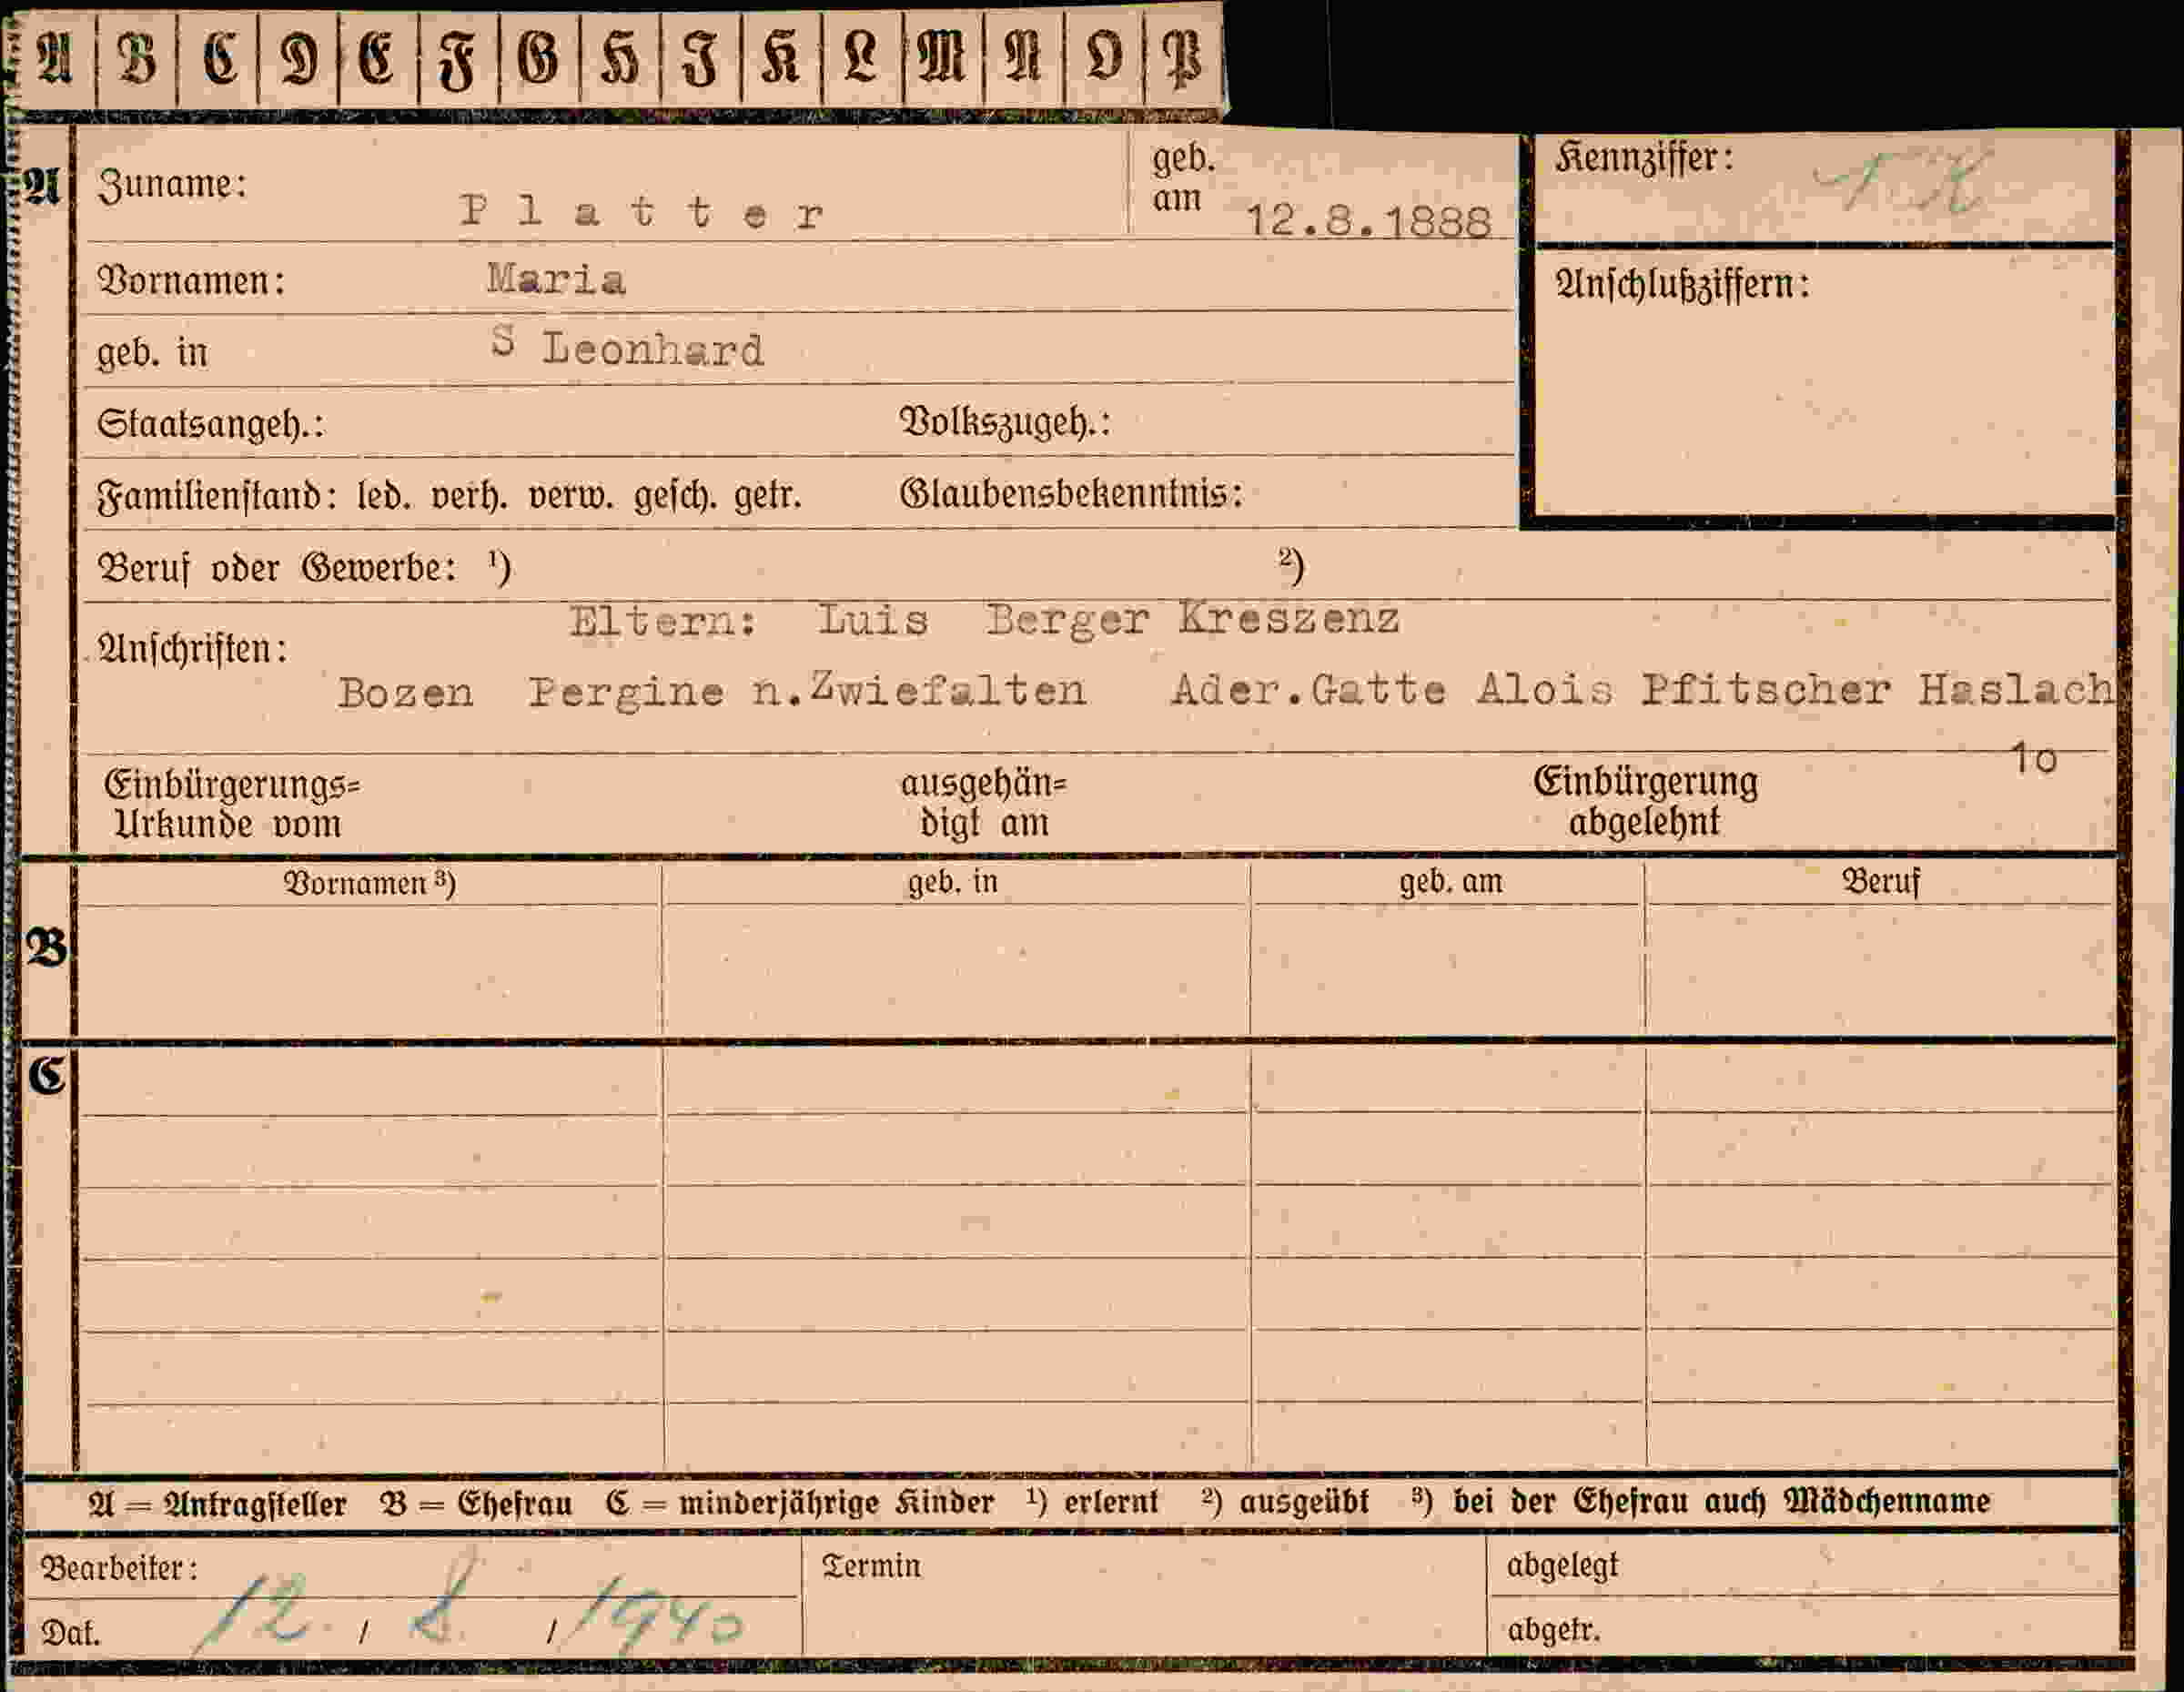 A B C D E F G H J K L M N O P
A Zuname: Platter geb. am 12.8.1888 Kennziffer:
Vornamen: Maria Anschlußziffern:
geb. in S Leonhard
Staatsangeh.: Volkszugeh.:
Familienstand: led. verh. verw. gesch. getr. Glaubensbekenntnis:
Beruf oder Gewerbe: ¹) ²)
Eltern: Luis Berger Kreszenz
Anschriften:
Bozen Pergine n.Zwiefalten Ader.Gatte Alois Pfitscher Haslach
1o
Einbürgerungs=
Urkunde vom
ausgehän=
digt am
Einbürgerung
abgelehnt
Vornamen ³) geb. in geb. am Beruf
B
C
A = Antragsteller B = Ehefrau C = minderjährige Kinder ¹) erlernt ²) ausgeübt ³) bei der Ehefrau auch Mädchenname
Bearbeiter: Termin abgelegt
Dat. 12. / 8. / 1940 abgetr.